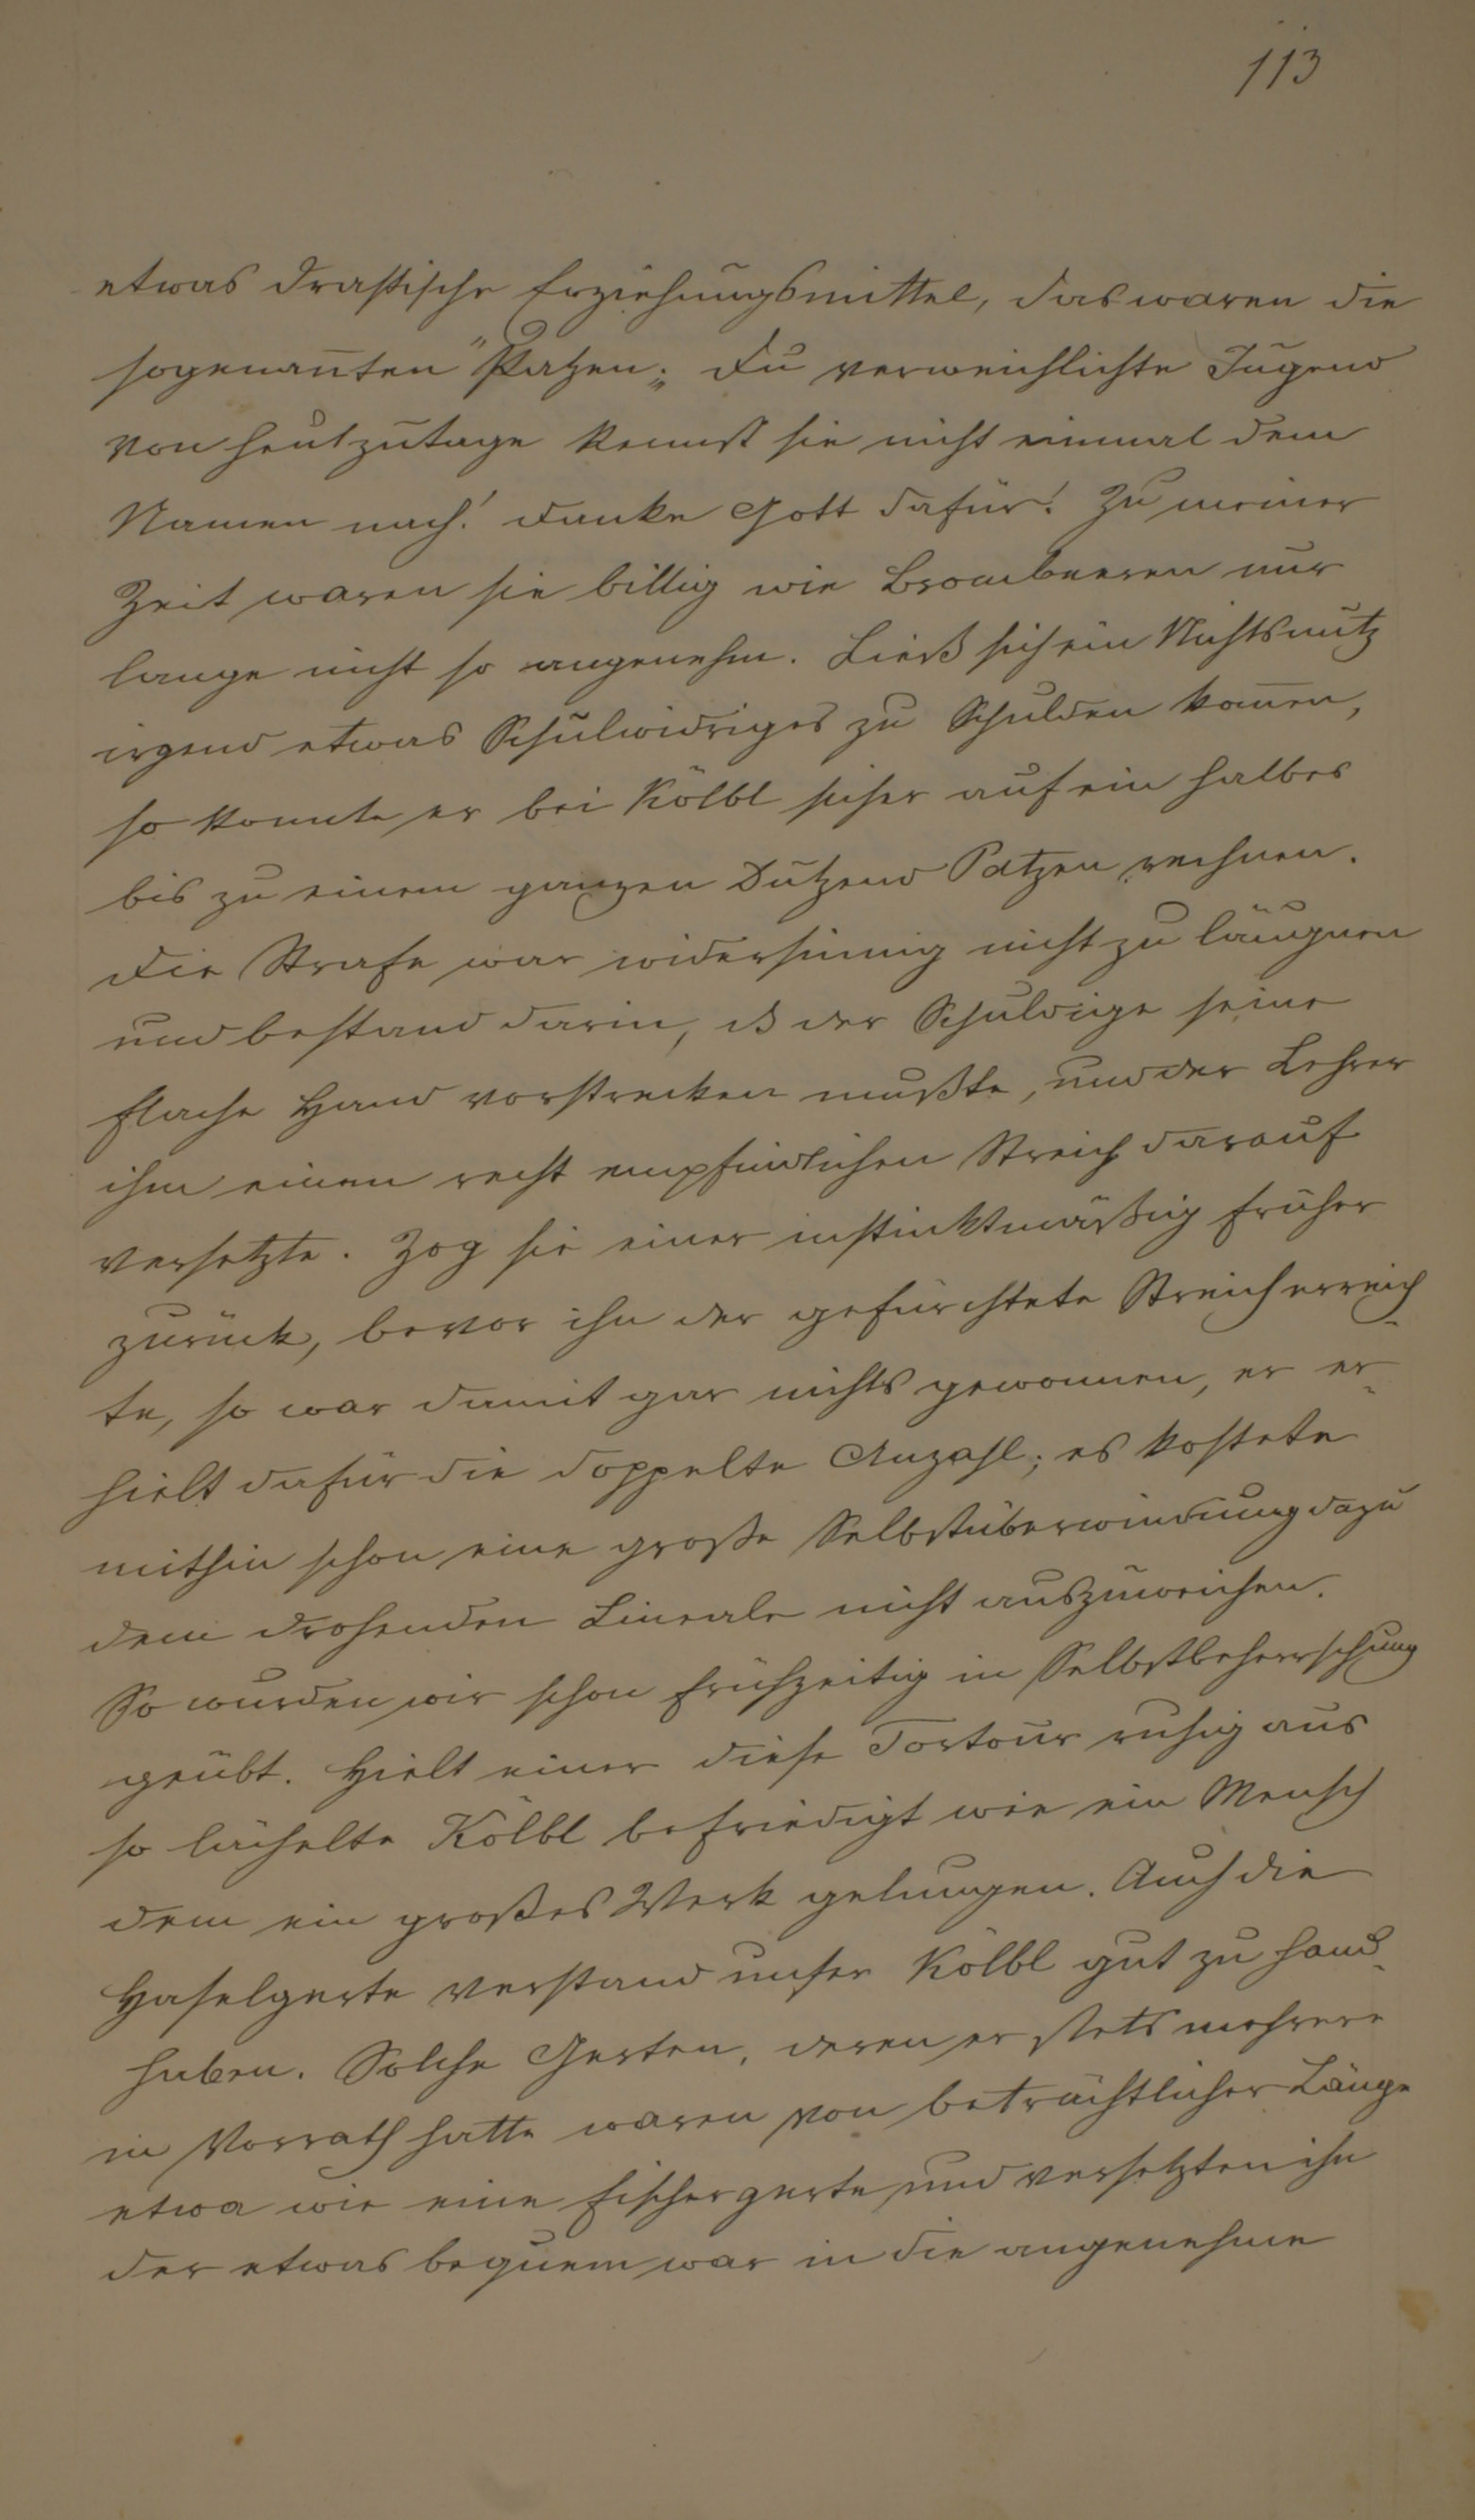 113
etwas drastische Erziehungsmittel, das waren die
sogenan̄ten "Patzen„. Du verweichlichte Jugend
von heutzutage kennst sie nicht einmal dem
Namen nach! Danke Gott dafür! Zu meiner
Zeit waren sie billig wie Brombeeren nur
lange nicht so angenehm. Ließ sich ein Nichtsnutz
irgend etwas Schulwidriges zu Schulden kom̄en,
so konnte er bei Kölbl sicher auf ein halbes
bis zu einem ganzen Dutzend Patzen rechnen.
Die Strafe war widersinnig nicht zu läugnen
und bestand darin, ß der Schuldige seine
flache Hand vorstrecken mußte, und der Lehrer
ihm einen recht empfindlichen Streich darauf
versetzte. Zog sie einer instinktmäßig früher
zurück, bevor ihn der gefürchtete Streich erreich-
te, so war damit gar nichts gewonnen, er er-
hielt dafür die doppelte Anzahl; es kostete
mithin schon eine große Selbstüberwindung dazu
dem drohenden Lineale nicht auszuweichen.
So wurden wir schon frühzeitig in Selbstbeherrschung
geübt. Hielt einer diese Tortour ruhig aus
so lächelte Kölbl befriedigt wie ein Mensch
dem ein großes Werk gelungen. Auch die
Haselgerte verstand unser Kölbl gut zu hand-
haben. Solche Gerten, deren er stets mehrere
in Vorrath hatte waren von beträchtlicher Länge
etwa wie eine Fischergerte und versetzten ihn
der etwas bequem war in die angenehme